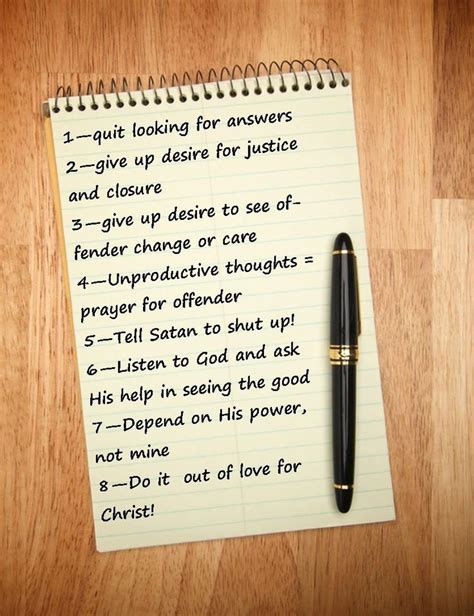 1—quit looking for answers
2—give up desire for justice
and closure
3—give up desire to see of-
fender change or care
4—Unproductive thoughts =
prayer for offender
5—Tell Satan to shut up!
6—Listen to God and ask
His help in seeing the good
7—Depend on His power,
not mine
8—Do it  out of love for
Christ!